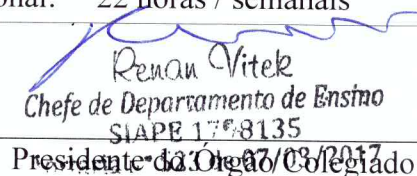 22 horas / semanais
Renan Vitek
Chefe de Departamento de Ensino
SIAPE 1798135
Presidente do Órgão Colegiado
123 07/03/2017